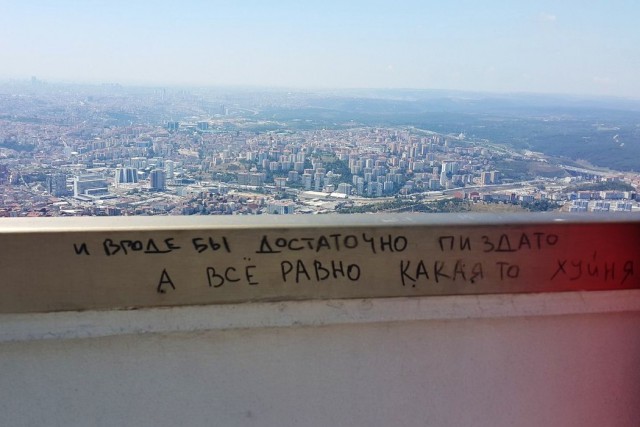 И ВРОДЕ БЫ ДОСТАТОЧНО ПИЗДАТО
А ВСЁ РАВНО КАКАЯ ТО ХУЙНЯ